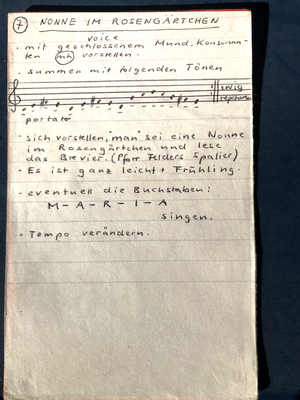 7 NONNE IM ROSENGÄRTCHEN
voice
• mit geschlossenem Mund. Konsonan-
ten mh vorstellen.
• summen mit folgenden Tönen
ewig
repetieren
portato
- sich vorstellen, "man" sei eine Nonne
im Rosengärtchen und lese
das Brevier. (Pfarr Felders Spalier)
- Es ist ganz leicht + Frühling.
- eventuell die Buchstaben:
M - A - R - I - A
singen.
- Tempo verändern.